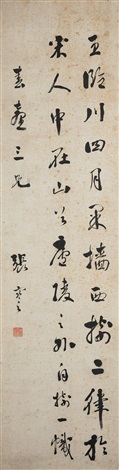 王臨川四月果墻西掖二律於
宋人中在山谷廬陵之外自樹一幟
春壺三兄
張謇